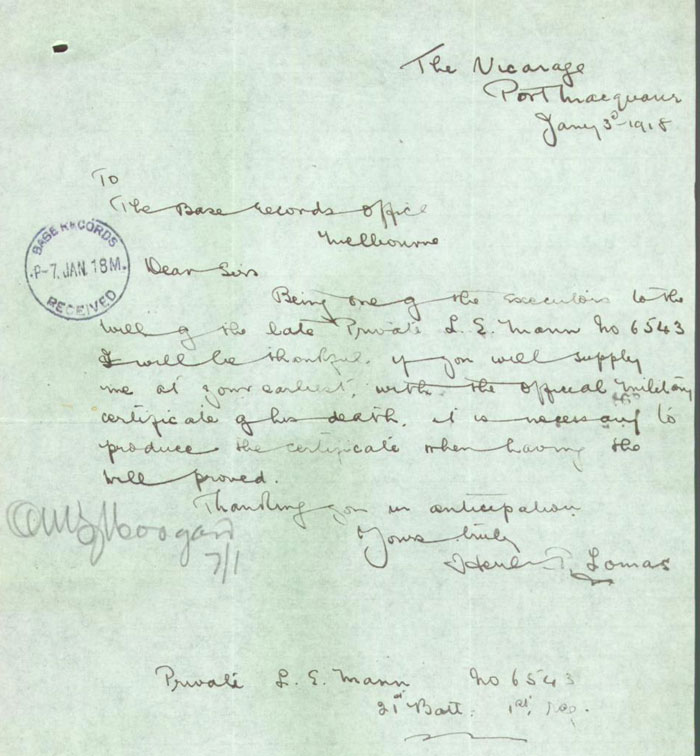 The Vicarage
Port Macquarie
Jany 3rd 1918
To
The Base Records Office
Melbourne
BASE RECORDS
P-7. JAN. 18 M.
RECEIVED
Dear Sirs
Being one of the executors to the
will of the late Private L. E. Mann No 6543
I will be thankful if you will supply
me at your earliest, with the official military
certificate of his death. it is necessary to
produce the certificate when having the
will proved.
Thanking you in anticipation
Yours truly
Lomas
7/1
Private L. E. Mann No 6543
21st Batt. 1st